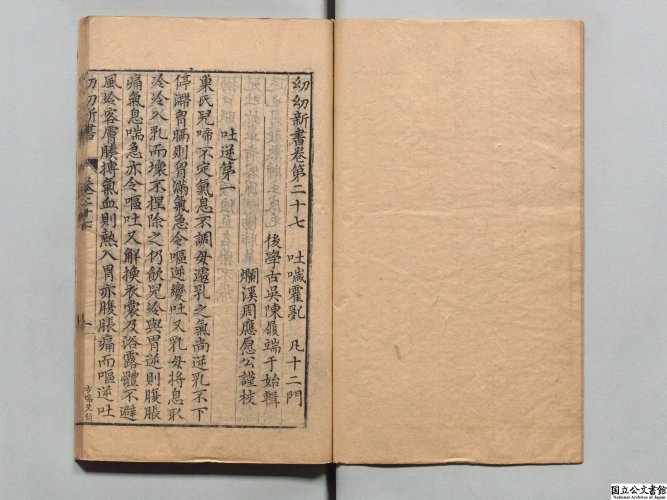 幼幼新書卷第二十七　吐噦霍亂　凡十二門
後學古吳陳履端于始輯
爛溪周應愿公謹校
吐逆第一
巢氏兒啼不定氣息不調母遽乳之氣尚逆乳不下
停滯胷膈則胷滿氣急令嘔逆變吐又乳母將息取
冷冷入乳而壞不捏除之仍飲兒冷與胃逆則腹脹
痛氣息喘急亦令嘔吐又解換衣裳及浴露體不避
風冷客膚腠搏氣血則熱入胃亦腹脹痛而嘔逆吐
幼幼新書
卷二十七
一
国立公文書館
National Archives of Japan